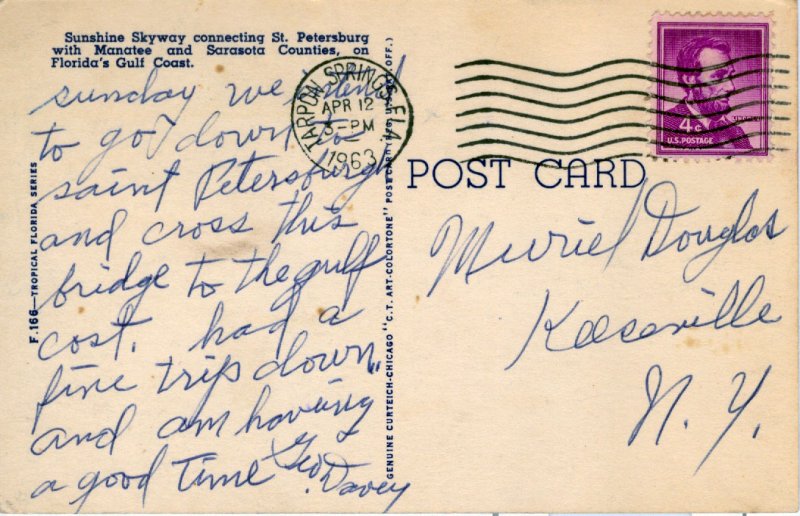 Sunshine Skyway connecting St. Petersburg
with Manatee and Sarasota Counties, on
Florida's Gulf Coast.
sunday we intend
to go down to
saint Petersburg
and cross this
bridge to the gulf
cost. had a
fine trip down
and am having
a good time Geo
Davey
F.166—TROPICAL FLORIDA SERIES
GENUINE CURTEICH-CHICAGO "C.T. ART-COLORTONE" POST CARD (REG. U.S. PAT. OFF.)
TARPON SPRINGS, FLA.
APR 12
3-PM
1963
4¢
U.S. POSTAGE
POST CARD
Muriel Douglas
Keeseville
N. Y.